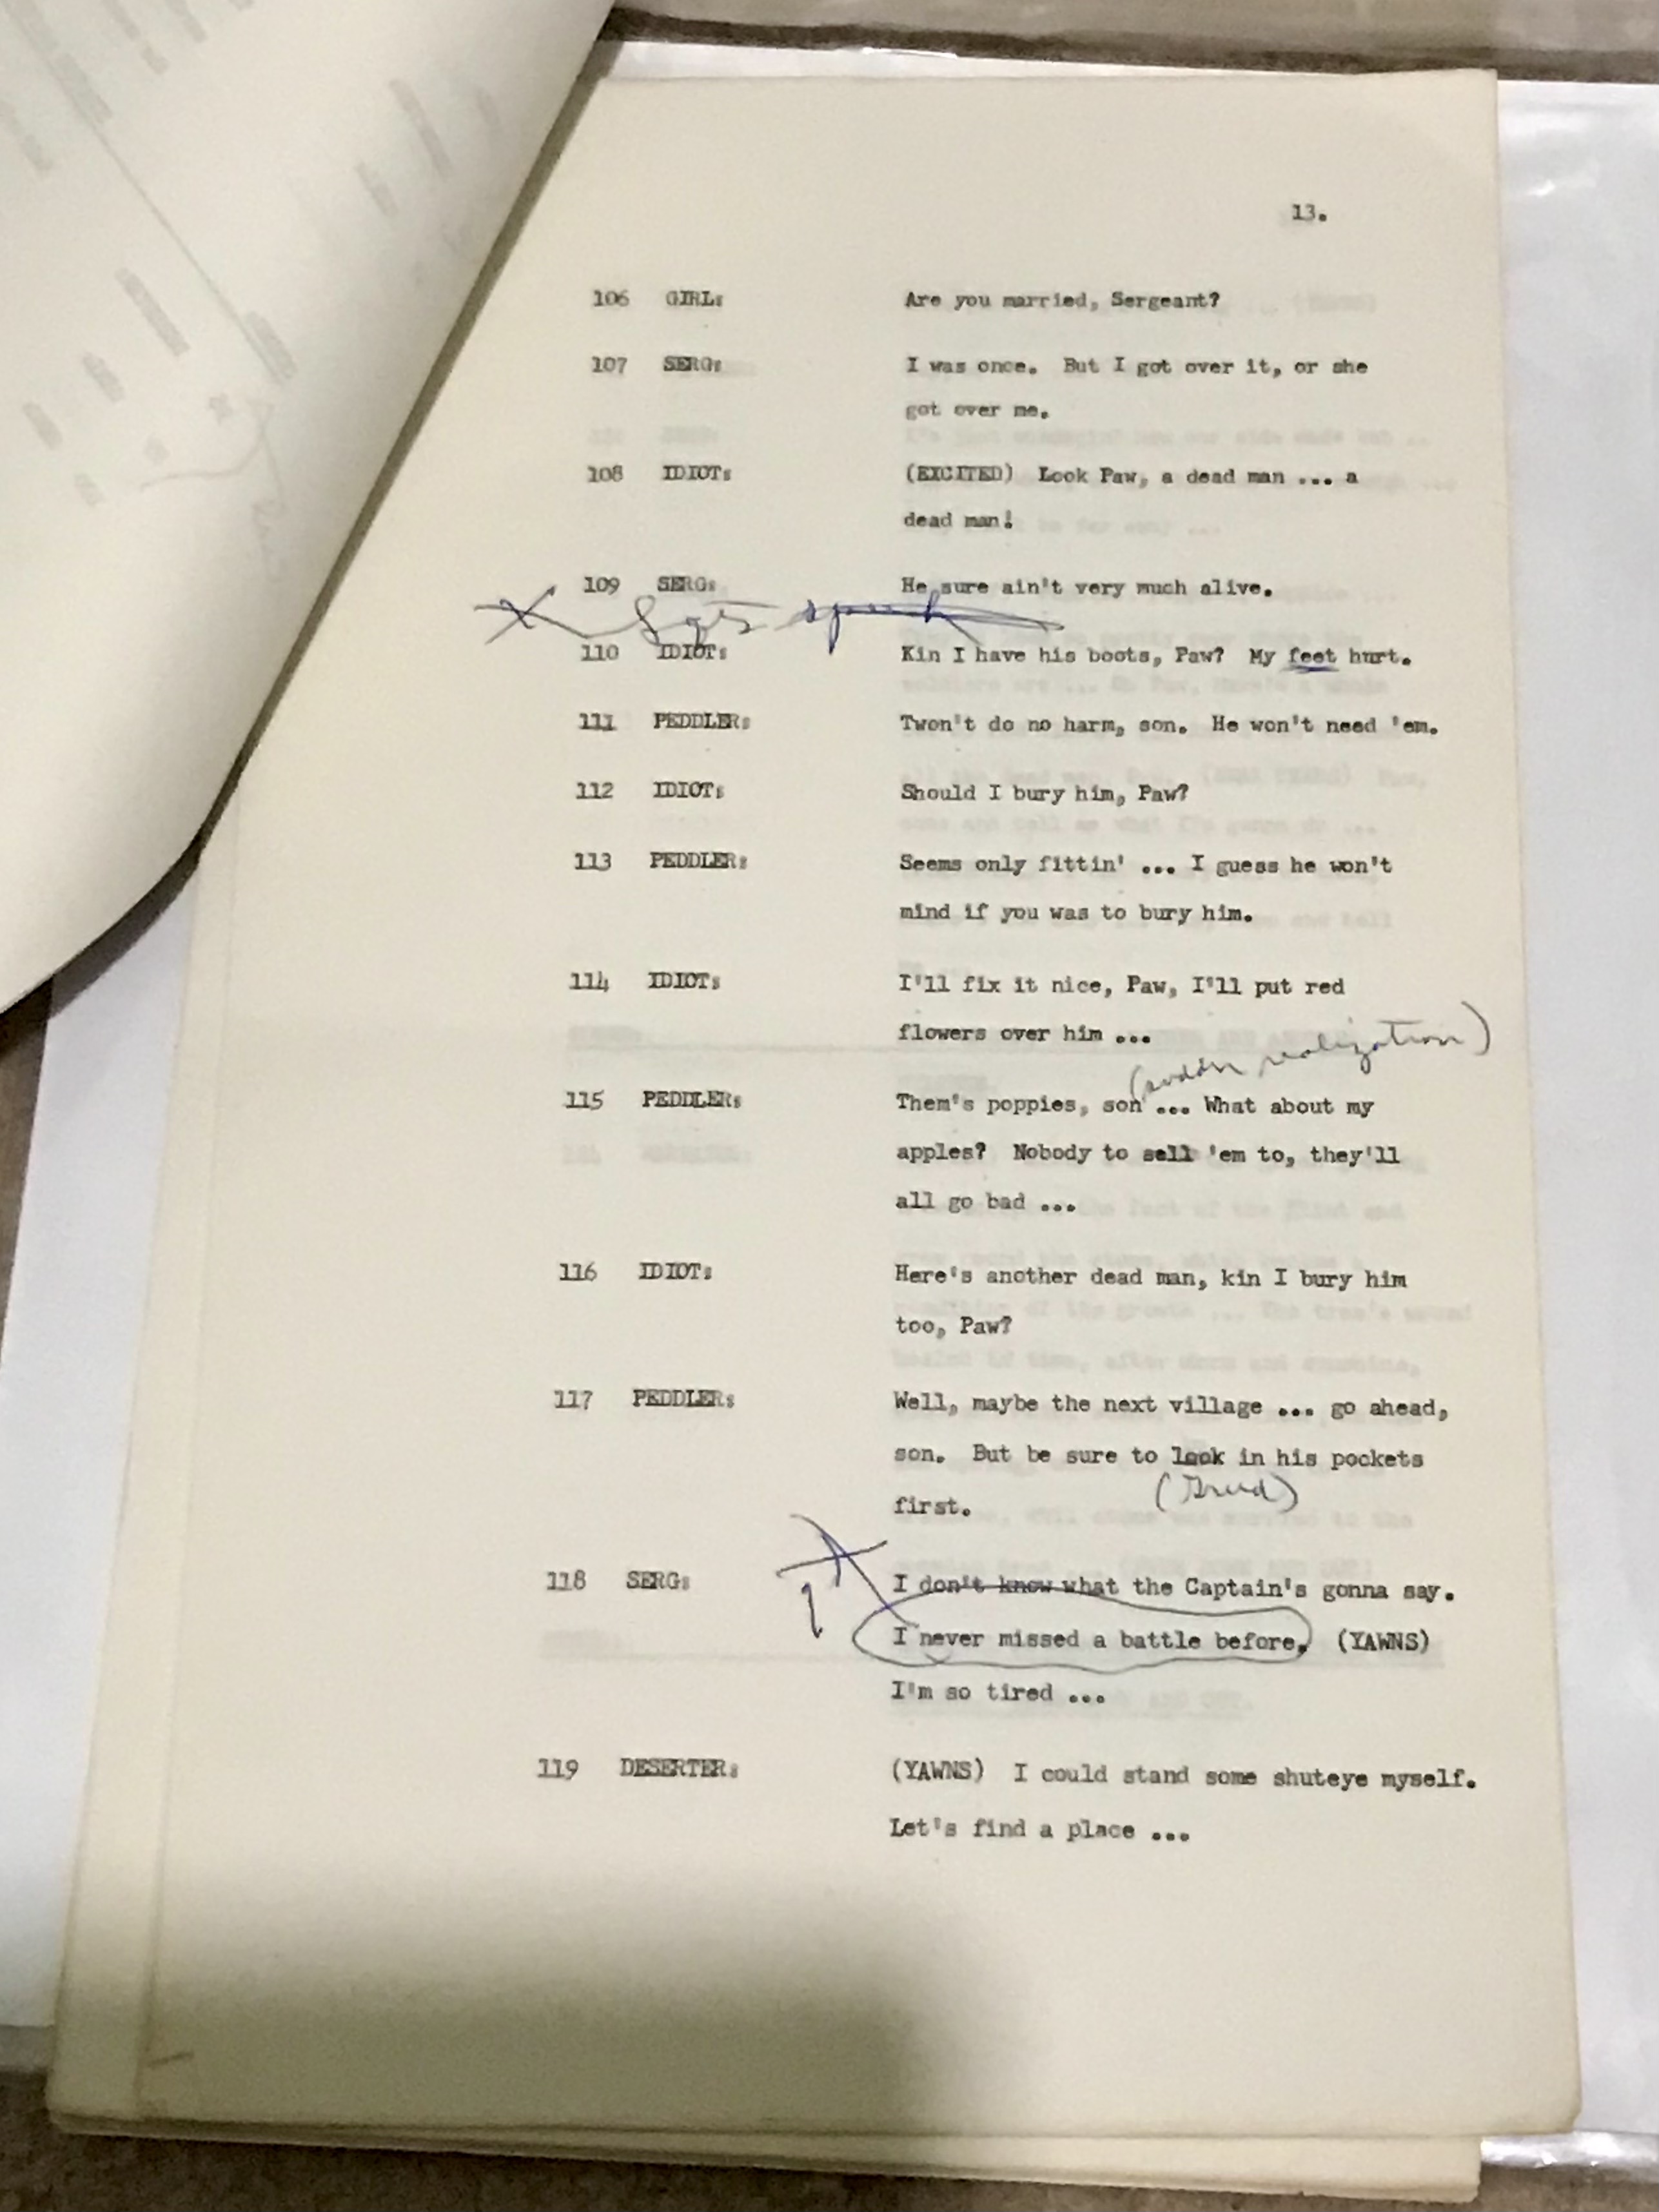 13.
106 GIRL: Are you married, Sergeant?
107 SERG: I was once. But I got over it, or she
got over me.
108 IDIOT: (EXCITED) Look Paw, a dead man ... a
dead man!
109 SERG: He sure ain't very much alive.
110 IDIOT: Kin I have his boots, Paw? My feet hurt.
111 PEDDLER: Twon't do no harm, son. He won't need 'em.
112 IDIOT: Should I bury him, Paw?
113 PEDDLER: Seems only fittin' ... I guess he won't
mind if you was to bury him.
114 IDIOT: I'll fix it nice, Paw, I'll put red
flowers over him ...
(sudden realization)
115 PEDDLER: Them's poppies, son ... What about my
apples? Nobody to sell 'em to, they'll
all go bad ...
116 IDIOT: Here's another dead man, kin I bury him
too, Paw?
117 PEDDLER: Well, maybe the next village ... go ahead,
son. But be sure to look in his pockets
first. (Greed)
118 SERG: I don't know what the Captain's gonna say.
I never missed a battle before. (YAWNS)
I'm so tired ...
119 DESERTER: (YAWNS) I could stand some shuteye myself.
Let's find a place ...